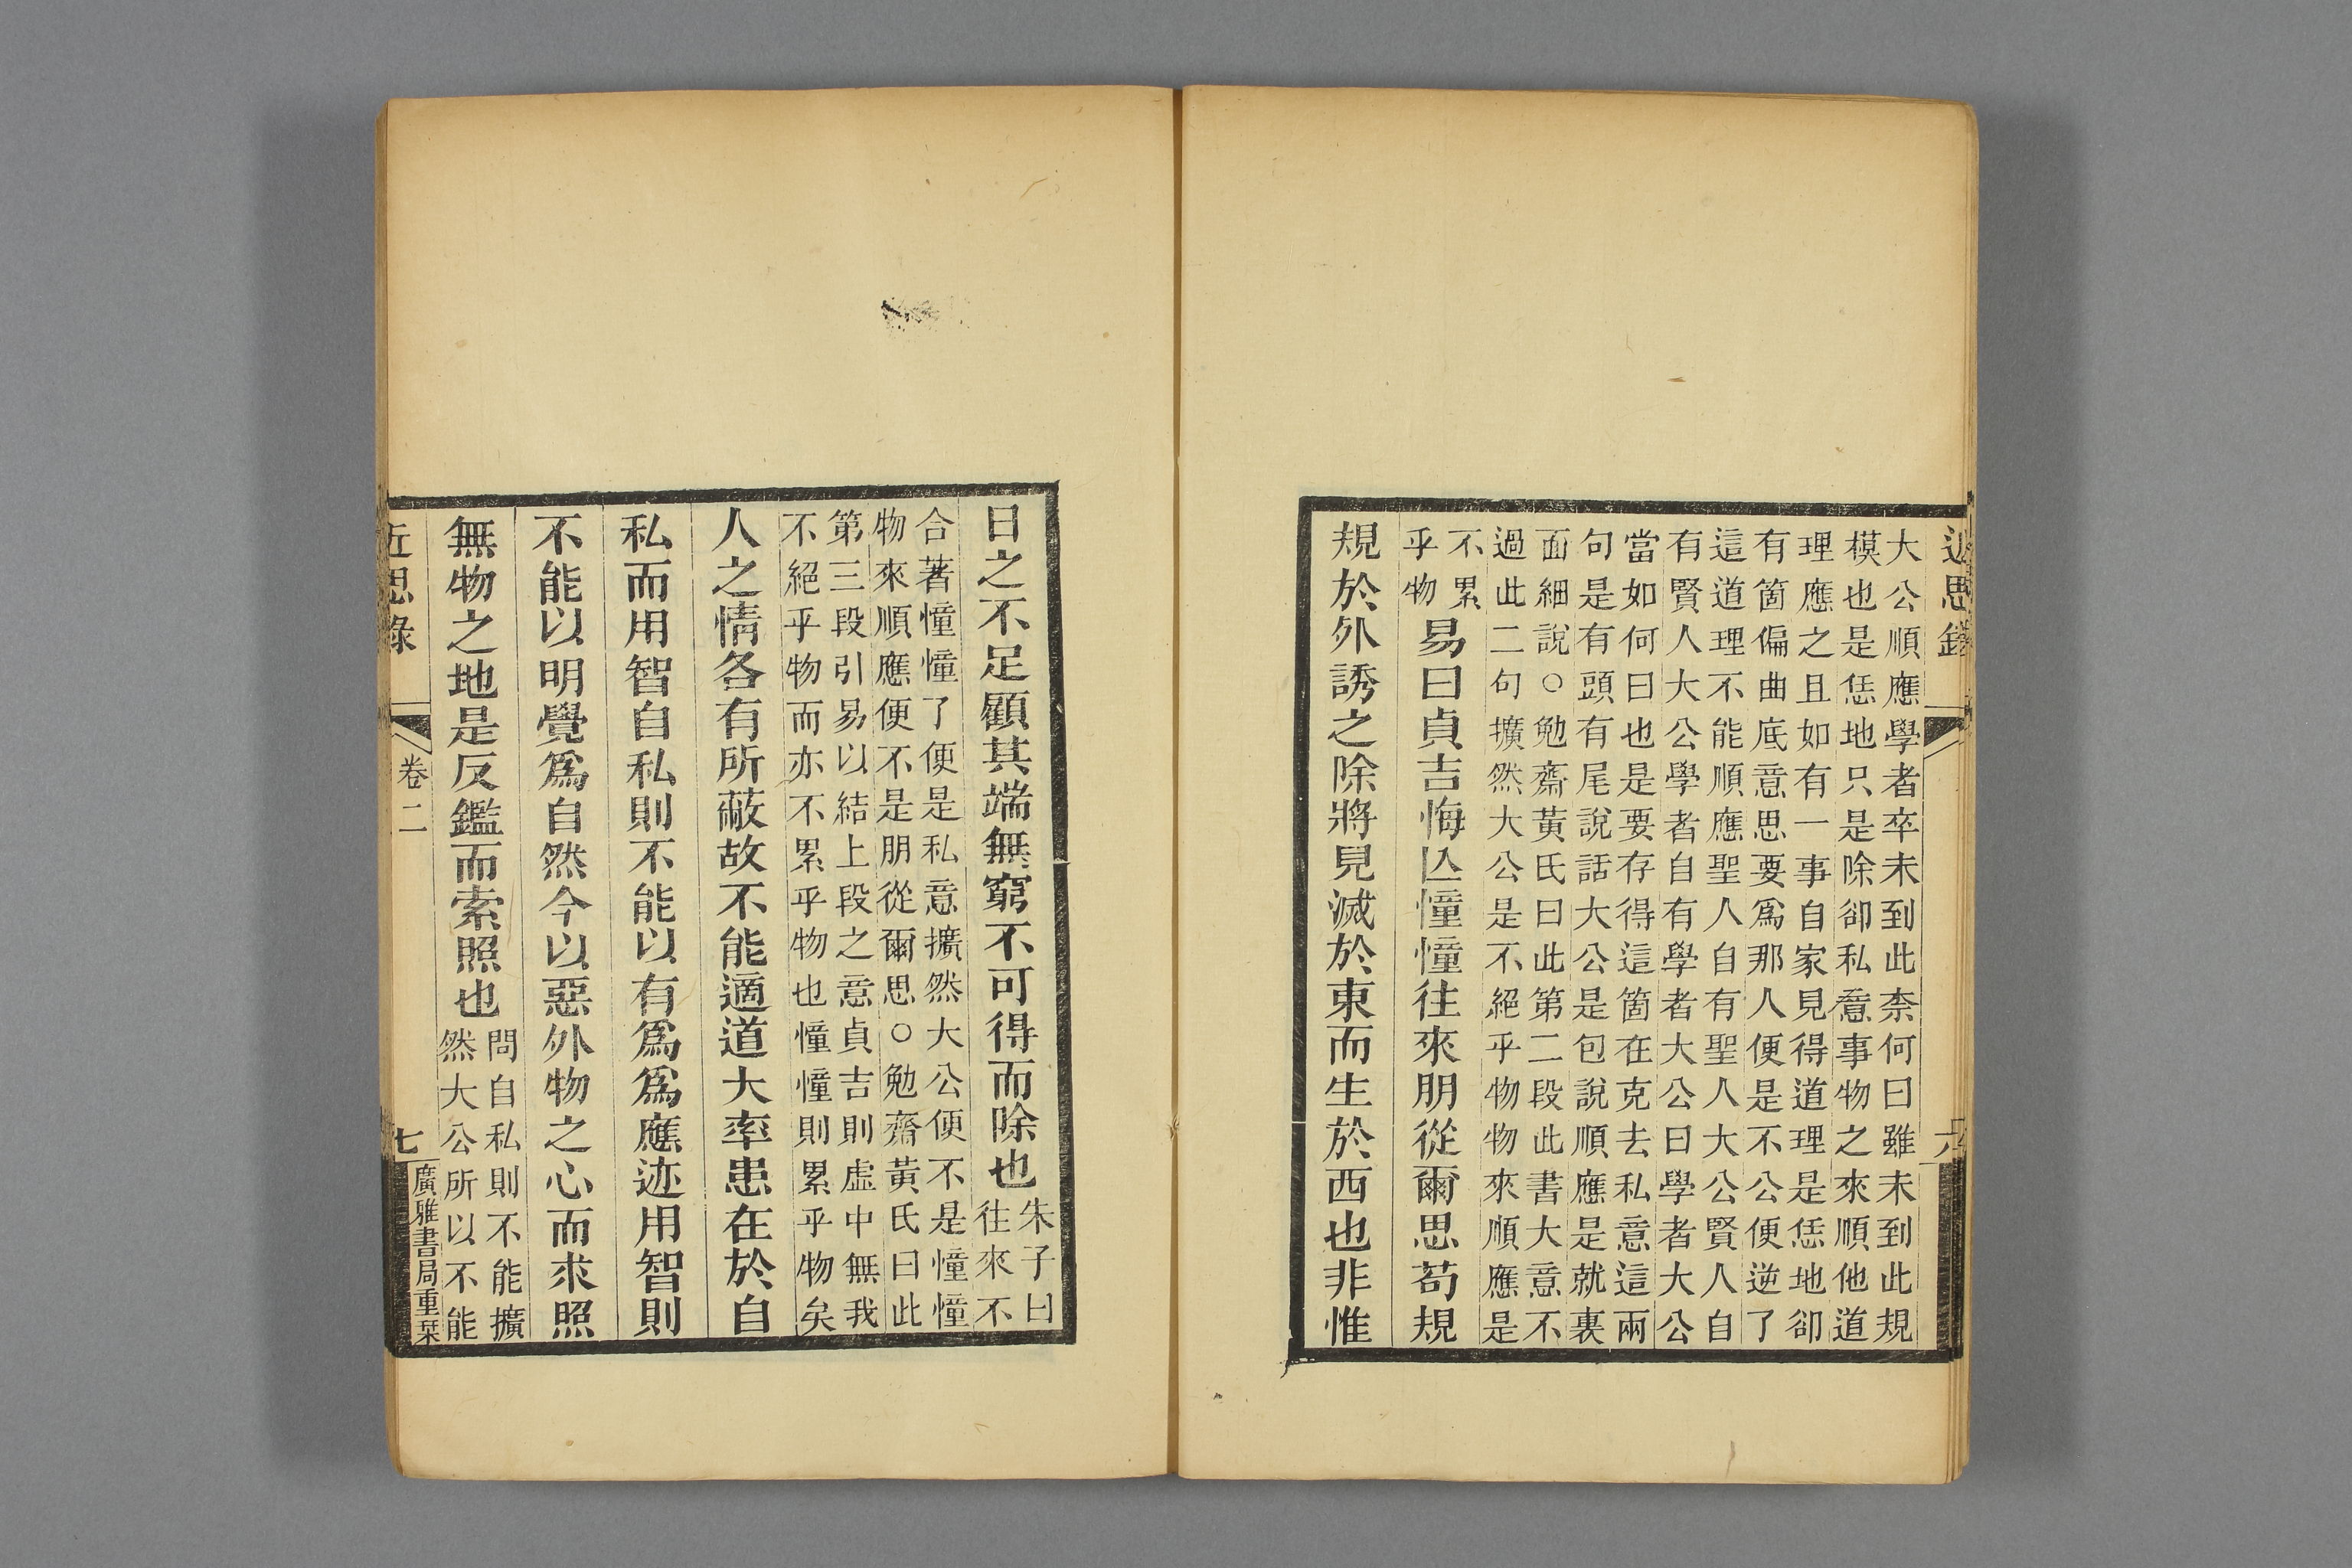 近思錄
六
大公順應學者卒未到此柰何曰雖未到此規
模也是恁地只是除卻私意事物之來順他道
理應之且如有一事自家見得道理是恁地卻
有箇偏曲底意思要爲那人便是不公便逆了
這道理不能順應聖人自有聖人大公賢人自
有賢人大公學者自有學者大公曰學者大公
當如何曰也是要存得這箇在克去私意這兩
句是有頭有尾說話大公是包說順應是就裏
面細說○勉齋黃氏曰此第二段此書大意不
過此二句擴然大公是不絕乎物物來順應是
不累
乎物
易曰貞吉悔亾憧憧往來朋從爾思苟規
規於外誘之除將見滅於東而生於西也非惟
日之不足顧其端無窮不可得而除也
朱子曰
往來不
合著憧憧了便是私意擴然大公便不是憧憧
物來順應便不是朋從爾思○勉齋黃氏曰此
第三段引易以結上段之意貞吉則虛中無我
不絕乎物而亦不累乎物也憧憧則累乎物矣
人之情各有所蔽故不能適道大率患在於自
私而用智自私則不能以有爲爲應迹用智則
不能以明覺爲自然今以惡外物之心而求照
無物之地是反鑑而索照也
問自私則不能擴
然大公所以不能
近思錄
卷二
七
廣雅書局重栞